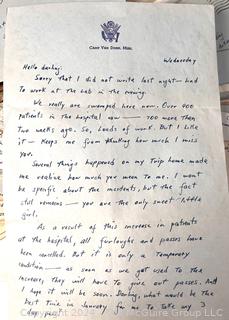 CAMP VAN DORN, MISS.
Wednesday
Hello darling:
Sorry that I did not write last night — had
to work at the lab in the evening.
We really are swamped here now. Over 900
patients in the hospital now — 700 more than
two weeks ago. So, loads of work. But I like
it — keeps me from thinking how much I miss
you.
Several things happened on my trip home made
me realize how much you mean to me. I wont
be specific about the incidents, but the fact
still remains — you are the only sweet little
girl.
As a result of this increase in patients
at the hospital, all furloughs and passes have
been cancelled. But it is only a temporary
condition — as soon as we get used to the
increase, they will have to give out passes. And
I hope it will be soon. Darling, what would be the
best time in January for me to take my 3
day pass
Copyright 2024 McGuire Group LLC